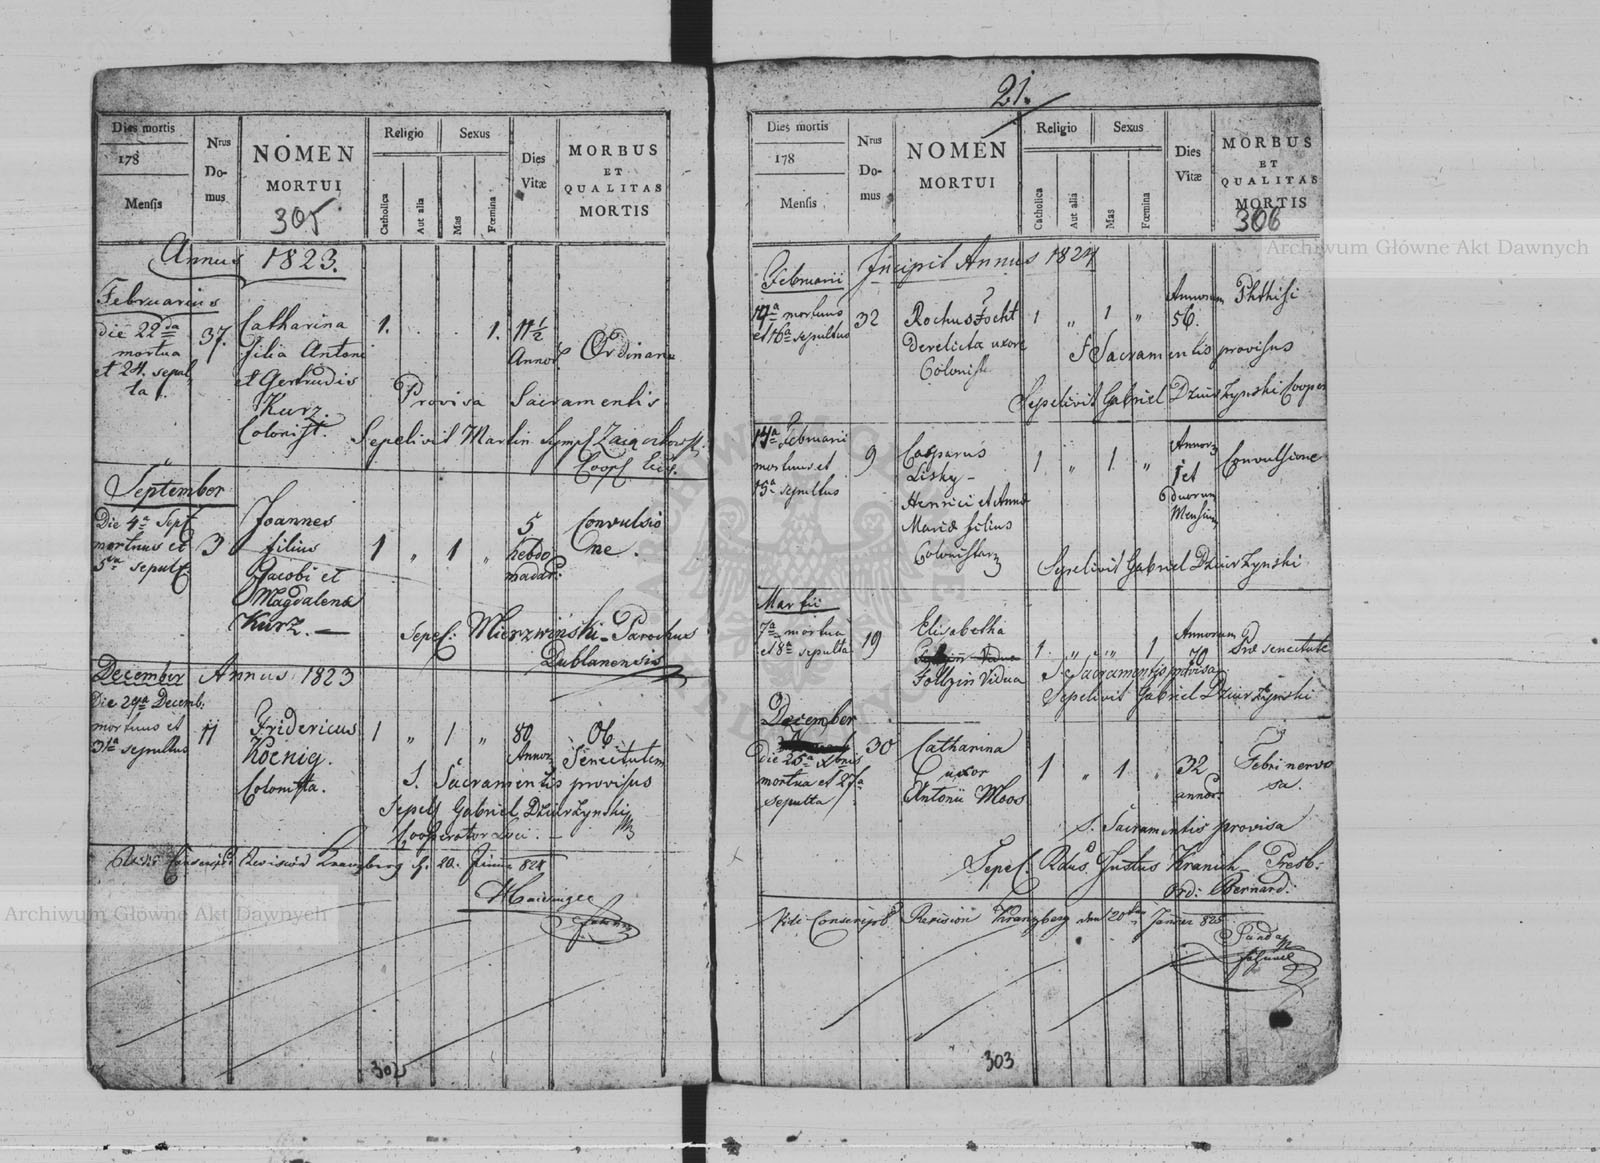 Dies mortis
178
Mensis
Nrus
Do-
mus
NOMEN
MORTUI
305
Religio
Catholica
Aut alia
Sexus
Mas
Fœmina
Dies
Vitæ
MORBUS
ET
QUALITAS
MORTIS
Annus 1823.
Februarius
die 22da
mortua
et 24. sepul
ta.
37.
Catharina
filia Antoni
et Gertrudis
Kurz.
Colonist.
1.
1.
11 1/2
Annor.
Ordinaria
Provisa Sacramentis
Sepelivit Martin
September
Die 4a Sept
mortuus et
5ta sepult
3
Joannes
filius
Jacobi et
Magdalena
Kurz.
1 " 1 "
5
hebdo
madar:
Convulsio
ne.
Sepel: Mierzwinski Parochus
Dublanensis
December Annus 1823
Die 29a Decemb.
mortuus et
31a sepultus
11
Fridericus
Koenig.
Colonista.
1 " 1 "
80
Annor
Ob
Senectutem
S. Sacramentis provisus
Sepel Gabriel Dziurzynski
Cooperator Loci.
302
21.
Dies mortis
178
Mensis
Nrus
Do-
mus
NOMEN
MORTUI
Religio
Catholica
Aut alia
Sexus
Mas
Fœmina
Dies
Vitæ
MORBUS
ET
QUALITAS
MORTIS
306
Archiwum Główne Akt Dawnych
Incipit Annus 1824
Februarii
14a mortuus
et 16a sepultus
32
Rochus Focht
Derelicta uxore
Colonist.
1 " 1 "
Annorum
56.
Phthisi
S Sacramentis provisus
Sepelivit Gabriel Dziurzynski Cooper
14a Februarii
mortuus et
15a sepultus
9
Casparus
Lisky
Henrici et Anna
Maria filius
1 " 1 "
Annor
1 et
duorum
Mensium
Convulsione
Sepelivit Gabriel Dziurzynski
Martii
7a mortua
et 8a sepulta
19
Elisabetha
Vidua
1 " " 1
Annorum
70
Præ senectute
S Sacramentis provisa
Sepelivit Gabriel Dziurzynski
December
die 25a xbris
mortua et 27a
sepulta
30
Catharina
uxor
Antonii Moos
1 " 1 "
32
annor:
Febri nervo
sa.
S. Sacramentis provisa
Sepel. Rdus Justus Kranich Presb:
Ord: Bernard:
303
Archiwum Główne Akt Dawnych